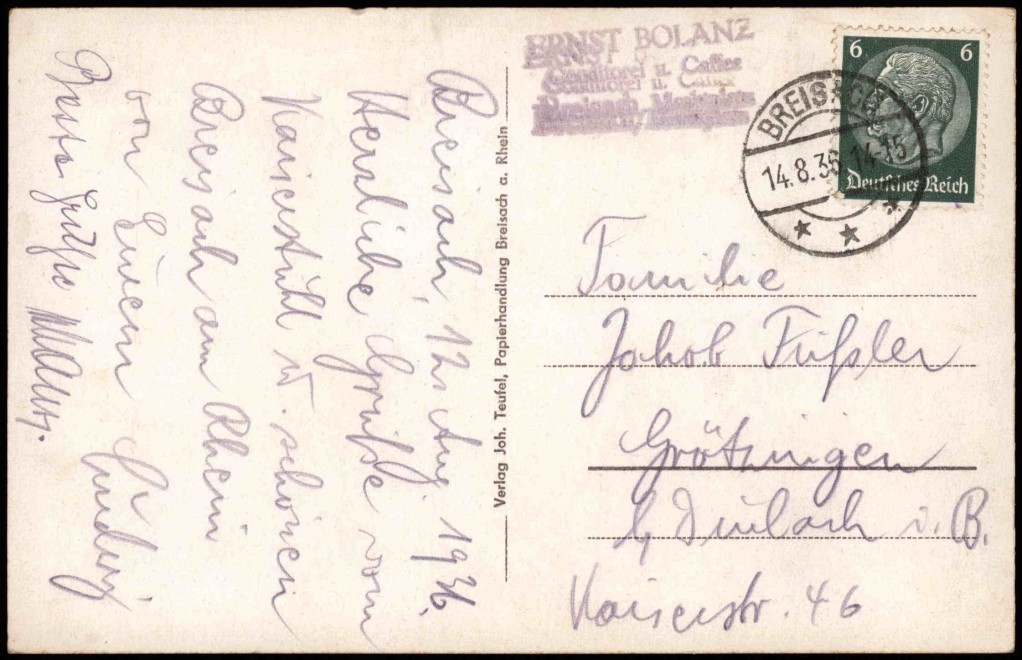 Breisach, 12. Aug. 1936.
Herzliche Grüße vom
Kaiserstuhl u. schönen
Breisach am Rhein
von Eurem
Ludwig
Beste Grüße
Verlag Joh. Teufel, Papierhandlung Breisach a. Rhein
ERNST BOLANZ
Conditorei u. Caffee
Breisach
BREISACH
14.8.36 14-15
6 6
Deutsches Reich
Familie
Jakob Füßler
Grötzingen
b/ Durlach i. B.
Kaiserstr. 46